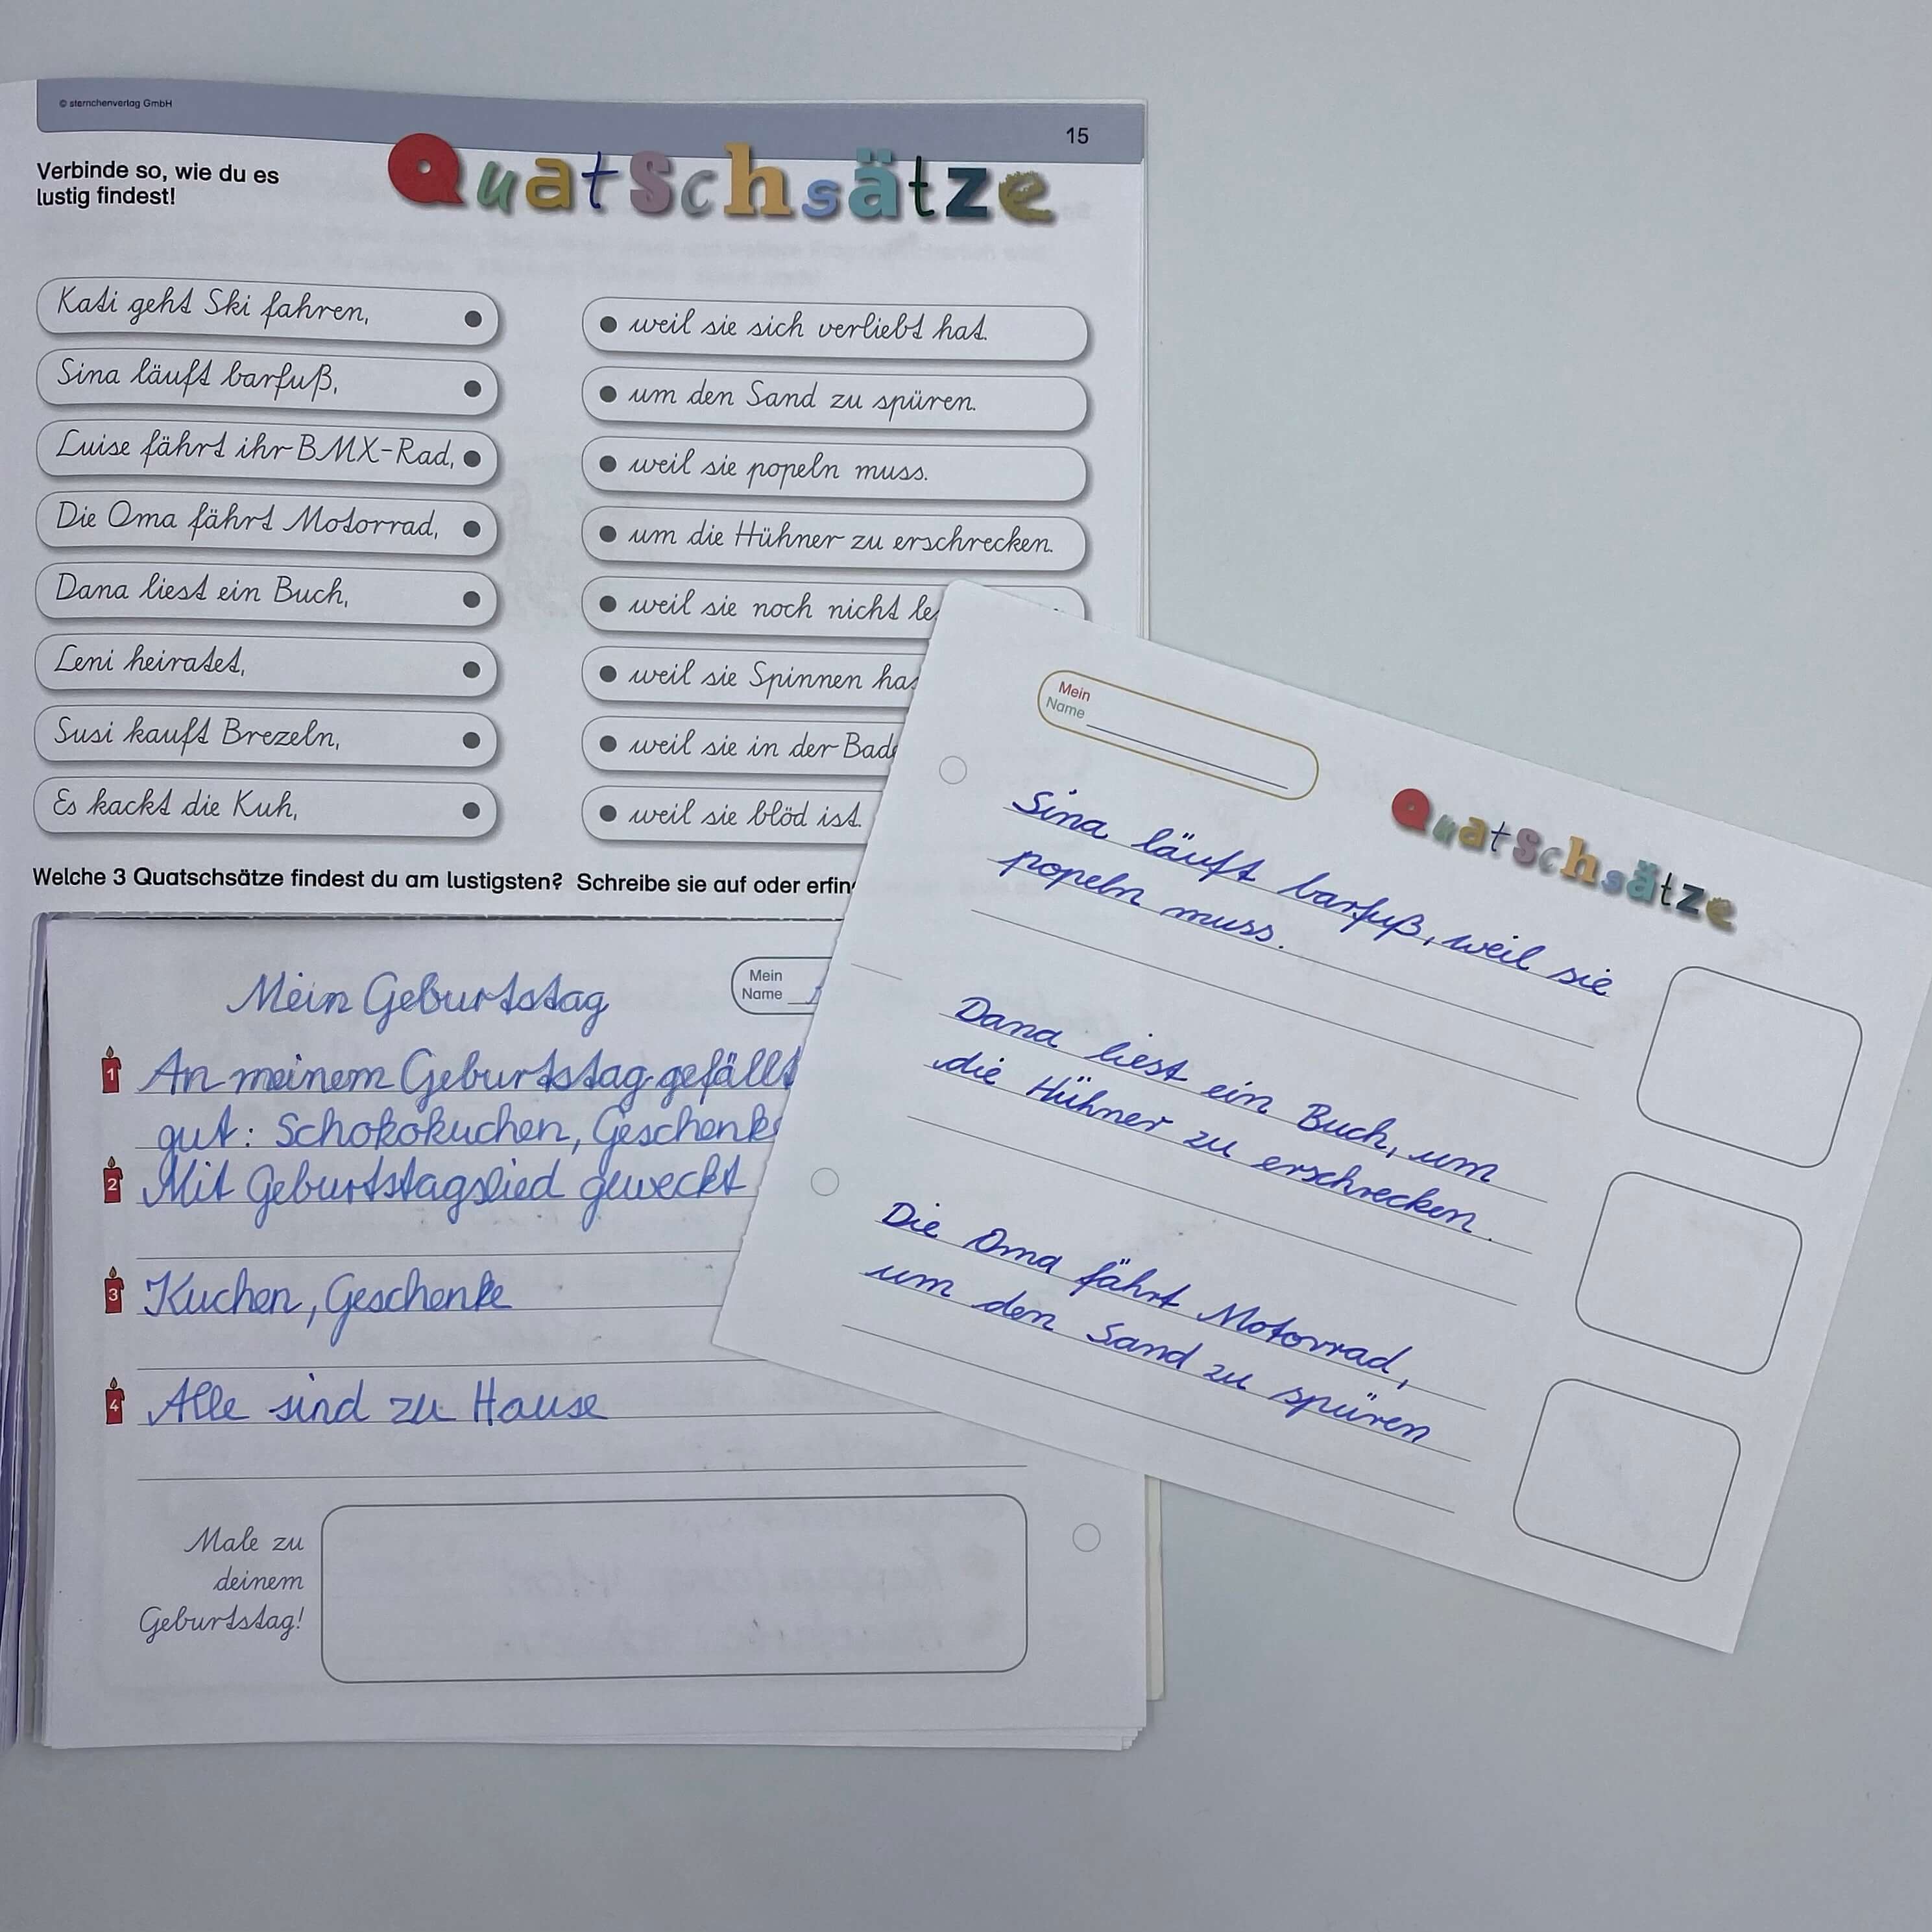 © sternchenverlag GmbH
15
Verbinde so, wie du es
lustig findest!
Quatschsätze
Kati geht Ski fahren,
Sina läuft barfuß,
Luise fährt ihr BMX-Rad,
Die Oma fährt Motorrad,
Dana liest ein Buch,
Leni heiratet,
Susi kauft Brezeln,
Es kackt die Kuh,
weil sie sich verliebt hat.
um den Sand zu spüren.
weil sie popeln muss.
um die Hühner zu erschrecken.
weil sie noch nicht
weil sie Spinnen
weil sie in der
weil sie blöd ist.
Welche 3 Quatschsätze findest du am lustigsten? Schreibe sie auf oder
Mein Geburtstag
Mein
Name
1 An meinem Geburtstag gefällt
gut: Schokokuchen, Geschenke
2 Mit Geburtstagslied geweckt
3 Kuchen, Geschenke
4 Alle sind zu Hause
Male zu
deinem
Geburtstag!
Mein
Name
Quatschsätze
Sina läuft barfuß, weil sie
popeln muss.
Dana liest ein Buch, um
die Hühner zu erschrecken.
Die Oma fährt Motorrad,
um den Sand zu spüren